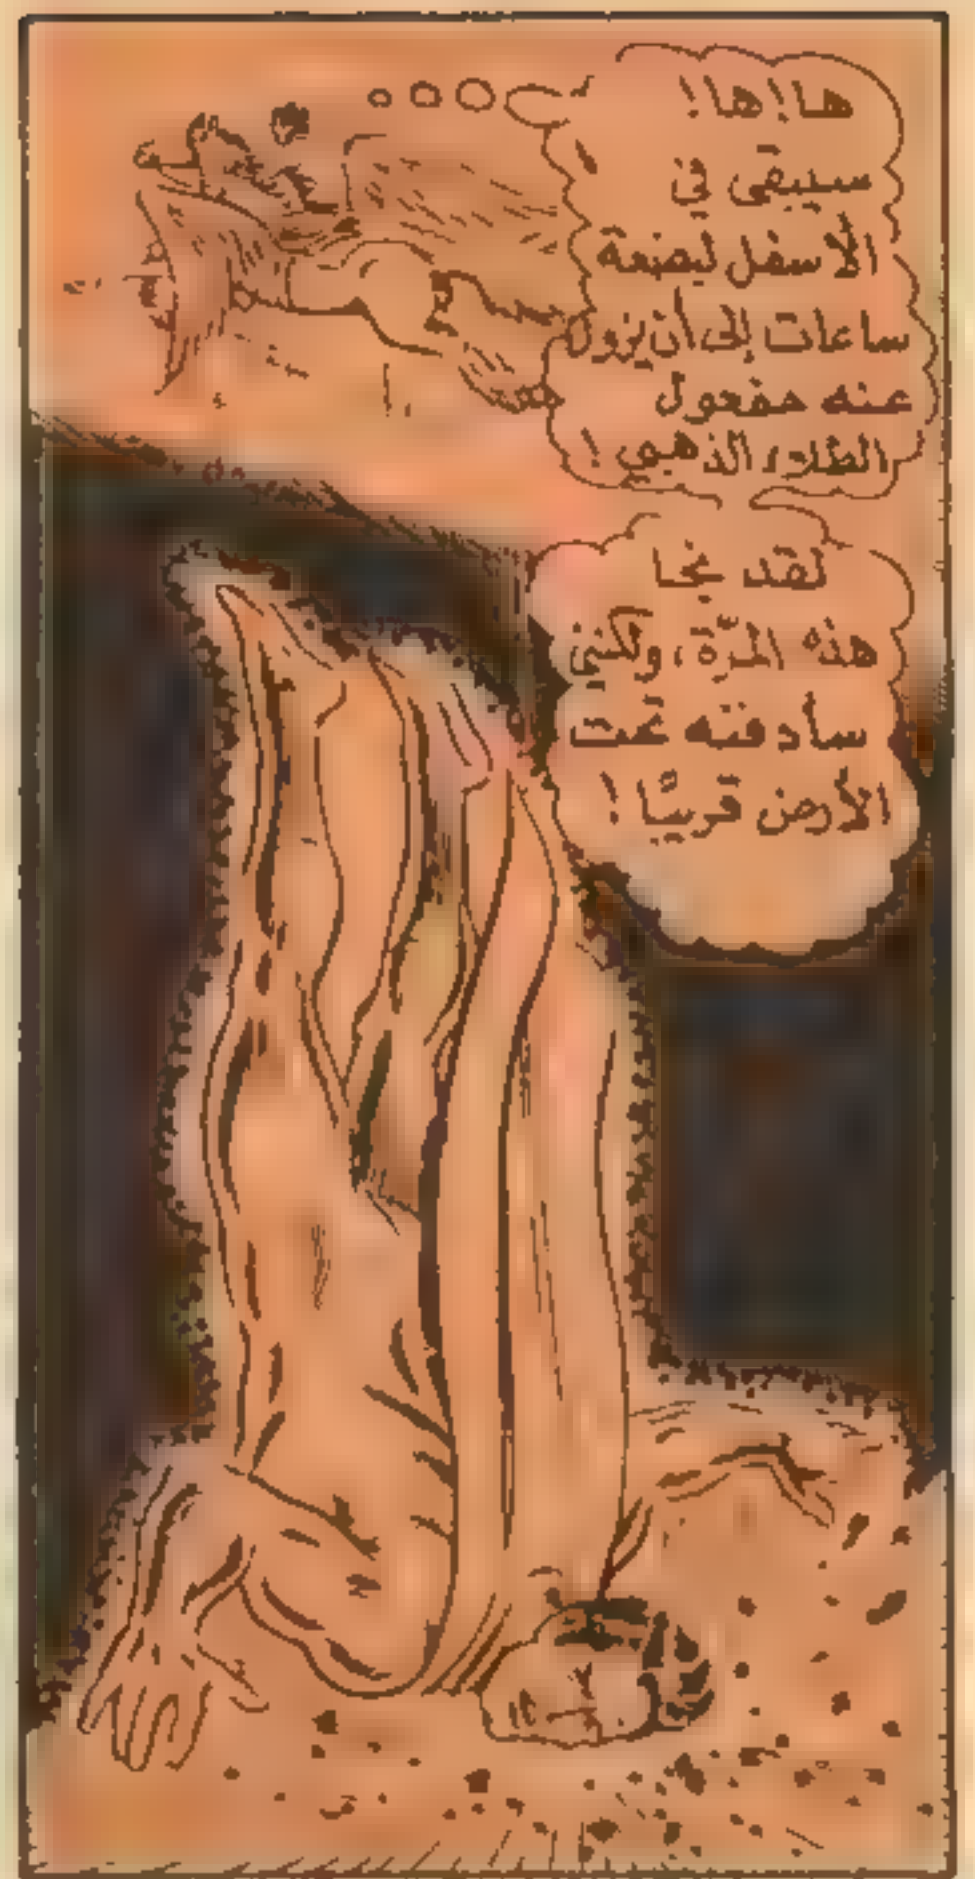 ها! ها!
سيبقى في
الأسفل لبضعة
ساعات إلى أن يزول
عنه مفعول
الطلاء الذهبي!
لقد نجا
هذه المرّة، ولكنني
سأدفنه تحت
الأرض قريبًا!